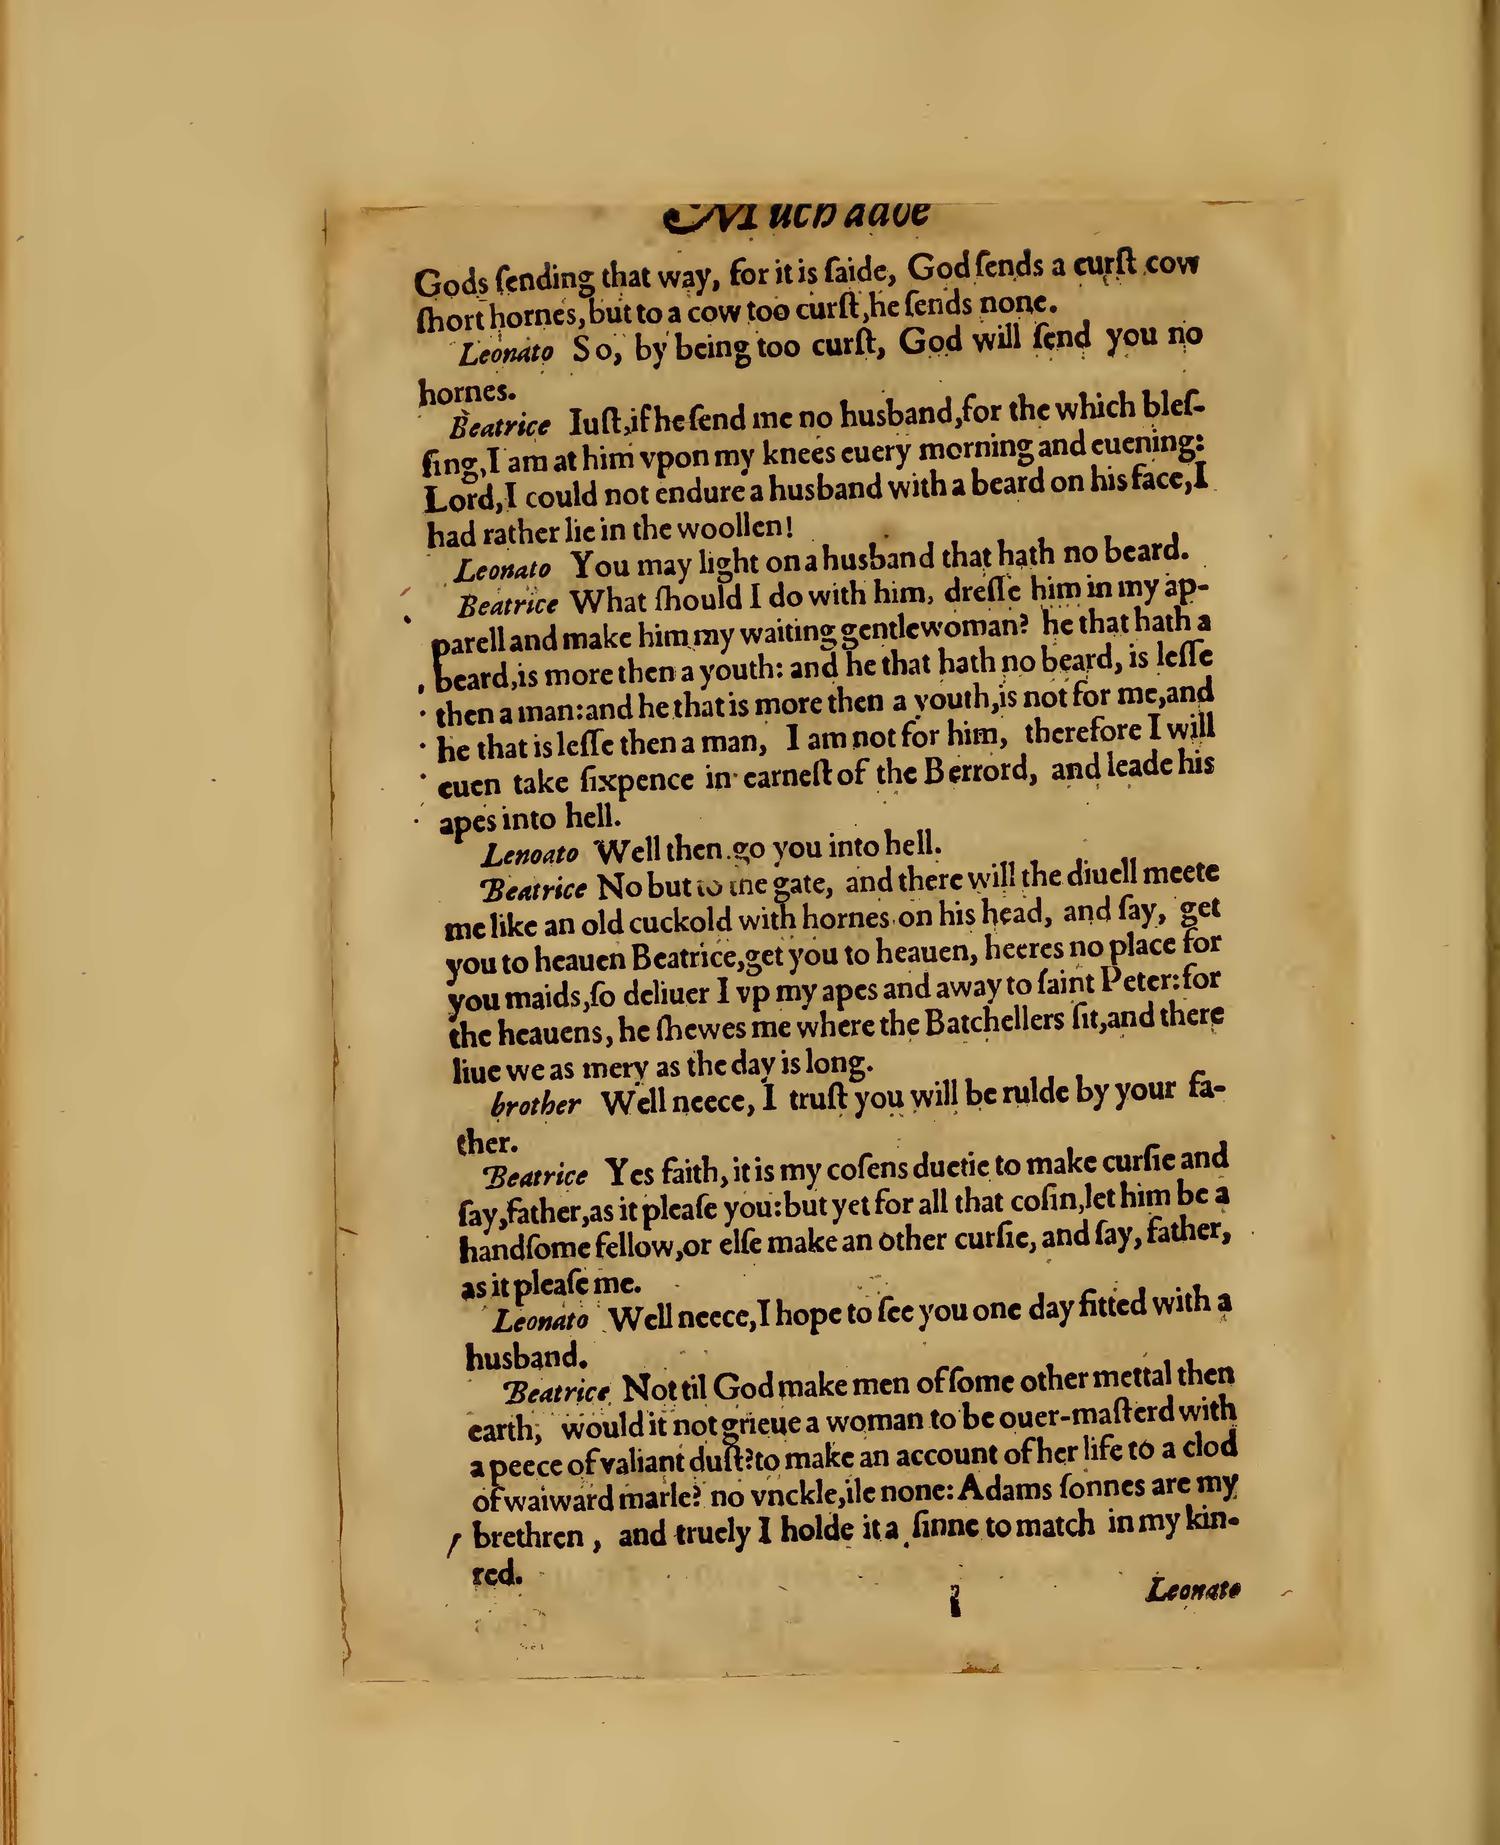 Much adoe
Gods ſending that way, for it is ſaide, God ſends a curſt cow
ſhort hornes, but to a cow too curſt, he ſends none.
Leonato So, by being too curſt, God will ſend you no
hornes.
Beatrice Iuſt, if he ſend me no husband, for the which bleſ-
ſing, I am at him vpon my knees euery morning and euening:
Lord, I could not endure a husband with a beard on his face, I
had rather lie in the woollen!
Leonato You may light on a husband that hath no beard.
Beatrice What ſhould I do with him, dreſſe him in my ap-
parell and make him my waiting gentlewoman? he that hath a
beard, is more then a youth: and he that hath no beard, is leſſe
then a man: and he that is more then a youth, is not for me, and
he that is leſſe then a man, I am not for him, therefore I will
euen take ſixpence in earneſt of the Berrord, and leade his
apes into hell.
Lenoato Well then go you into hell.
Beatrice No but to the gate, and there will the diuell meete
me like an old cuckold with hornes on his head, and ſay, get
you to heauen Beatrice, get you to heauen, heeres no place for
you maids, ſo deliuer I vp my apes and away to ſaint Peter: for
the heauens, he ſhewes me where the Batchellers ſit, and there
liue we as mery as the day is long.
brother Well neece, I truſt you will be rulde by your fa-
ther.
Beatrice Yes faith, it is my coſens duetie to make curſie and
ſay, father, as it pleaſe you: but yet for all that coſin, let him be a
handſome fellow, or elſe make an other curſie, and ſay, father,
as it pleaſe me.
Leonato Well neece, I hope to ſee you one day fitted with a
husband.
Beatrice Not til God make men of ſome other mettal then
earth, would it not grieue a woman to be ouer-maſterd with
a peece of valiant duſt? to make an account of her life to a clod
of waiward marle? no vnckle, ile none: Adams ſonnes are my
brethren, and truely I holde it a ſinne to match in my kin-
red.
Leonato